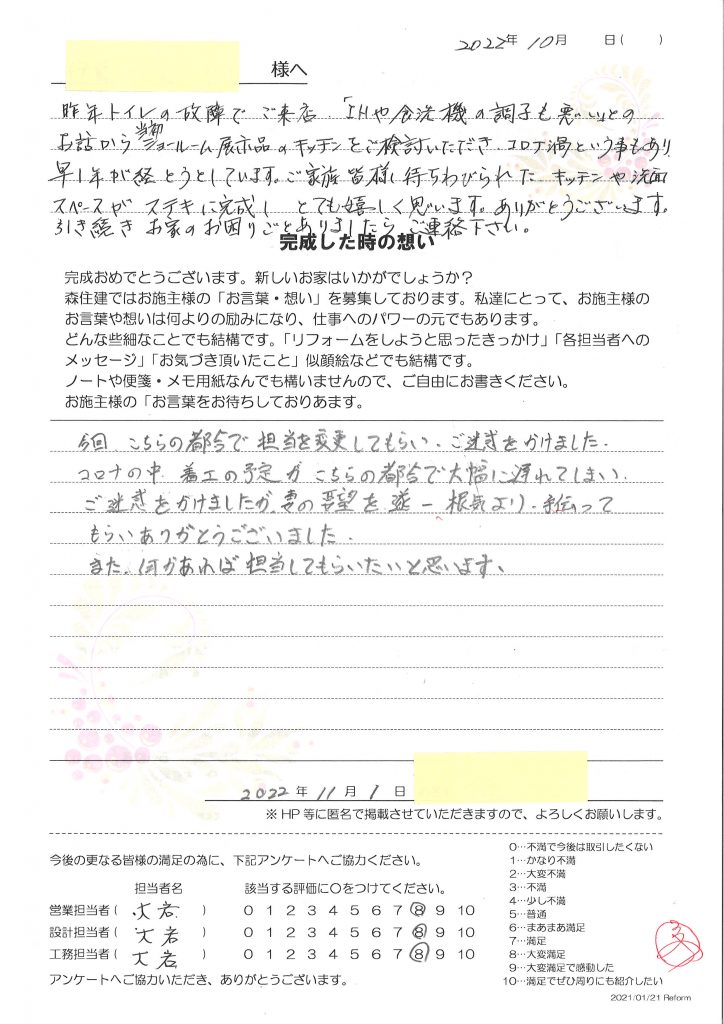 2022年 10月　　日(　　)
様へ
昨年トイレの故障で ご来店 「IHや食洗機の調子も悪い」との
お話から 当初 ショールーム展示品のキッチンをご検討いただき、コロナ渦という事もあり
早1年が経とうとしています。ご家族皆様 待ちわびられた キッチンや洗面
スペースが ステキに完成し とても嬉しく思います。ありがとうございます。
引き続き お家のお困りごとありましたら ご連絡下さい。
完成した時の想い
完成おめでとうございます。新しいお家はいかがでしょうか？
森住建ではお施主様の「お言葉・想い」を募集しております。私達にとって、お施主様の
お言葉や想いは何よりの励みになり、仕事へのパワーの元でもあります。
どんな些細なことでも結構です。「リフォームをしようと思ったきっかけ」「各担当者への
メッセージ」「お気づき頂いたこと」似顔絵などでも結構です。
ノートや便箋・メモ用紙なんでも構いませんので、ご自由にお書きください。
お施主様の「お言葉をお待ちしておりあます。
今回、こちらの都合で 担当を変更してもらい、ご迷惑をかけました。
コロナの中、着工の予定が こちらの都合で大幅に遅れてしまい、
ご迷惑をかけましたが、妻の要望を 逐一 根気より、手伝って
もらいありがとうございました。
また、何かあれば 担当してもらいたいと思います、
2022 年 11 月 1 日
※HP等に匿名で掲載させていただきますので、よろしくお願いします。
今後の更なる皆様の満足の為に、下記アンケートへご協力ください。
担当者名　該当する評価に〇をつけてください。
営業担当者( 大岩 ) 0 1 2 3 4 5 6 7 8 9 10
設計担当者( 大岩 ) 0 1 2 3 4 5 6 7 8 9 10
工務担当者( 大岩 ) 0 1 2 3 4 5 6 7 8 9 10
アンケートへご協力いただき、ありがとうございます。
0…不満で今後は取引したくない
1…かなり不満
2…大変不満
3…不満
4…少し不満
5…普通
6…まあまあ満足
7…満足
8…大変満足
9…大変満足で感動した
10…満足でぜひ周りにも紹介したい
2021/01/21 Reform